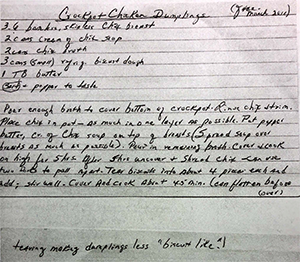 Crockpot Chicken Dumplings
March 2011)
3-6 boneless, skinless Chic breast
2 cans cream of chic soup
2 cans chic broth
3 cans (small) biscuit dough
1 TB butter
pepper to taste
Pour enough broth to cover bottom of crockpot. Rinse chic & trim.
Place chic in pot as much in one layer as possible. Put pepper
butter, Cr. of Chic Soup on top of breasts (Spread soup over
breasts as much as possible). Pour in remaining broth. Cover & cook
on high for 5 hrs. After 5 hrs uncover & Shred chic - can use
two to pull apart. Tear biscuits into about 4 pieces each and
add; stir well. Cover And cook About 45 min. (can flatten before
(over)
tearing making dumplings less "biscuit like"!)